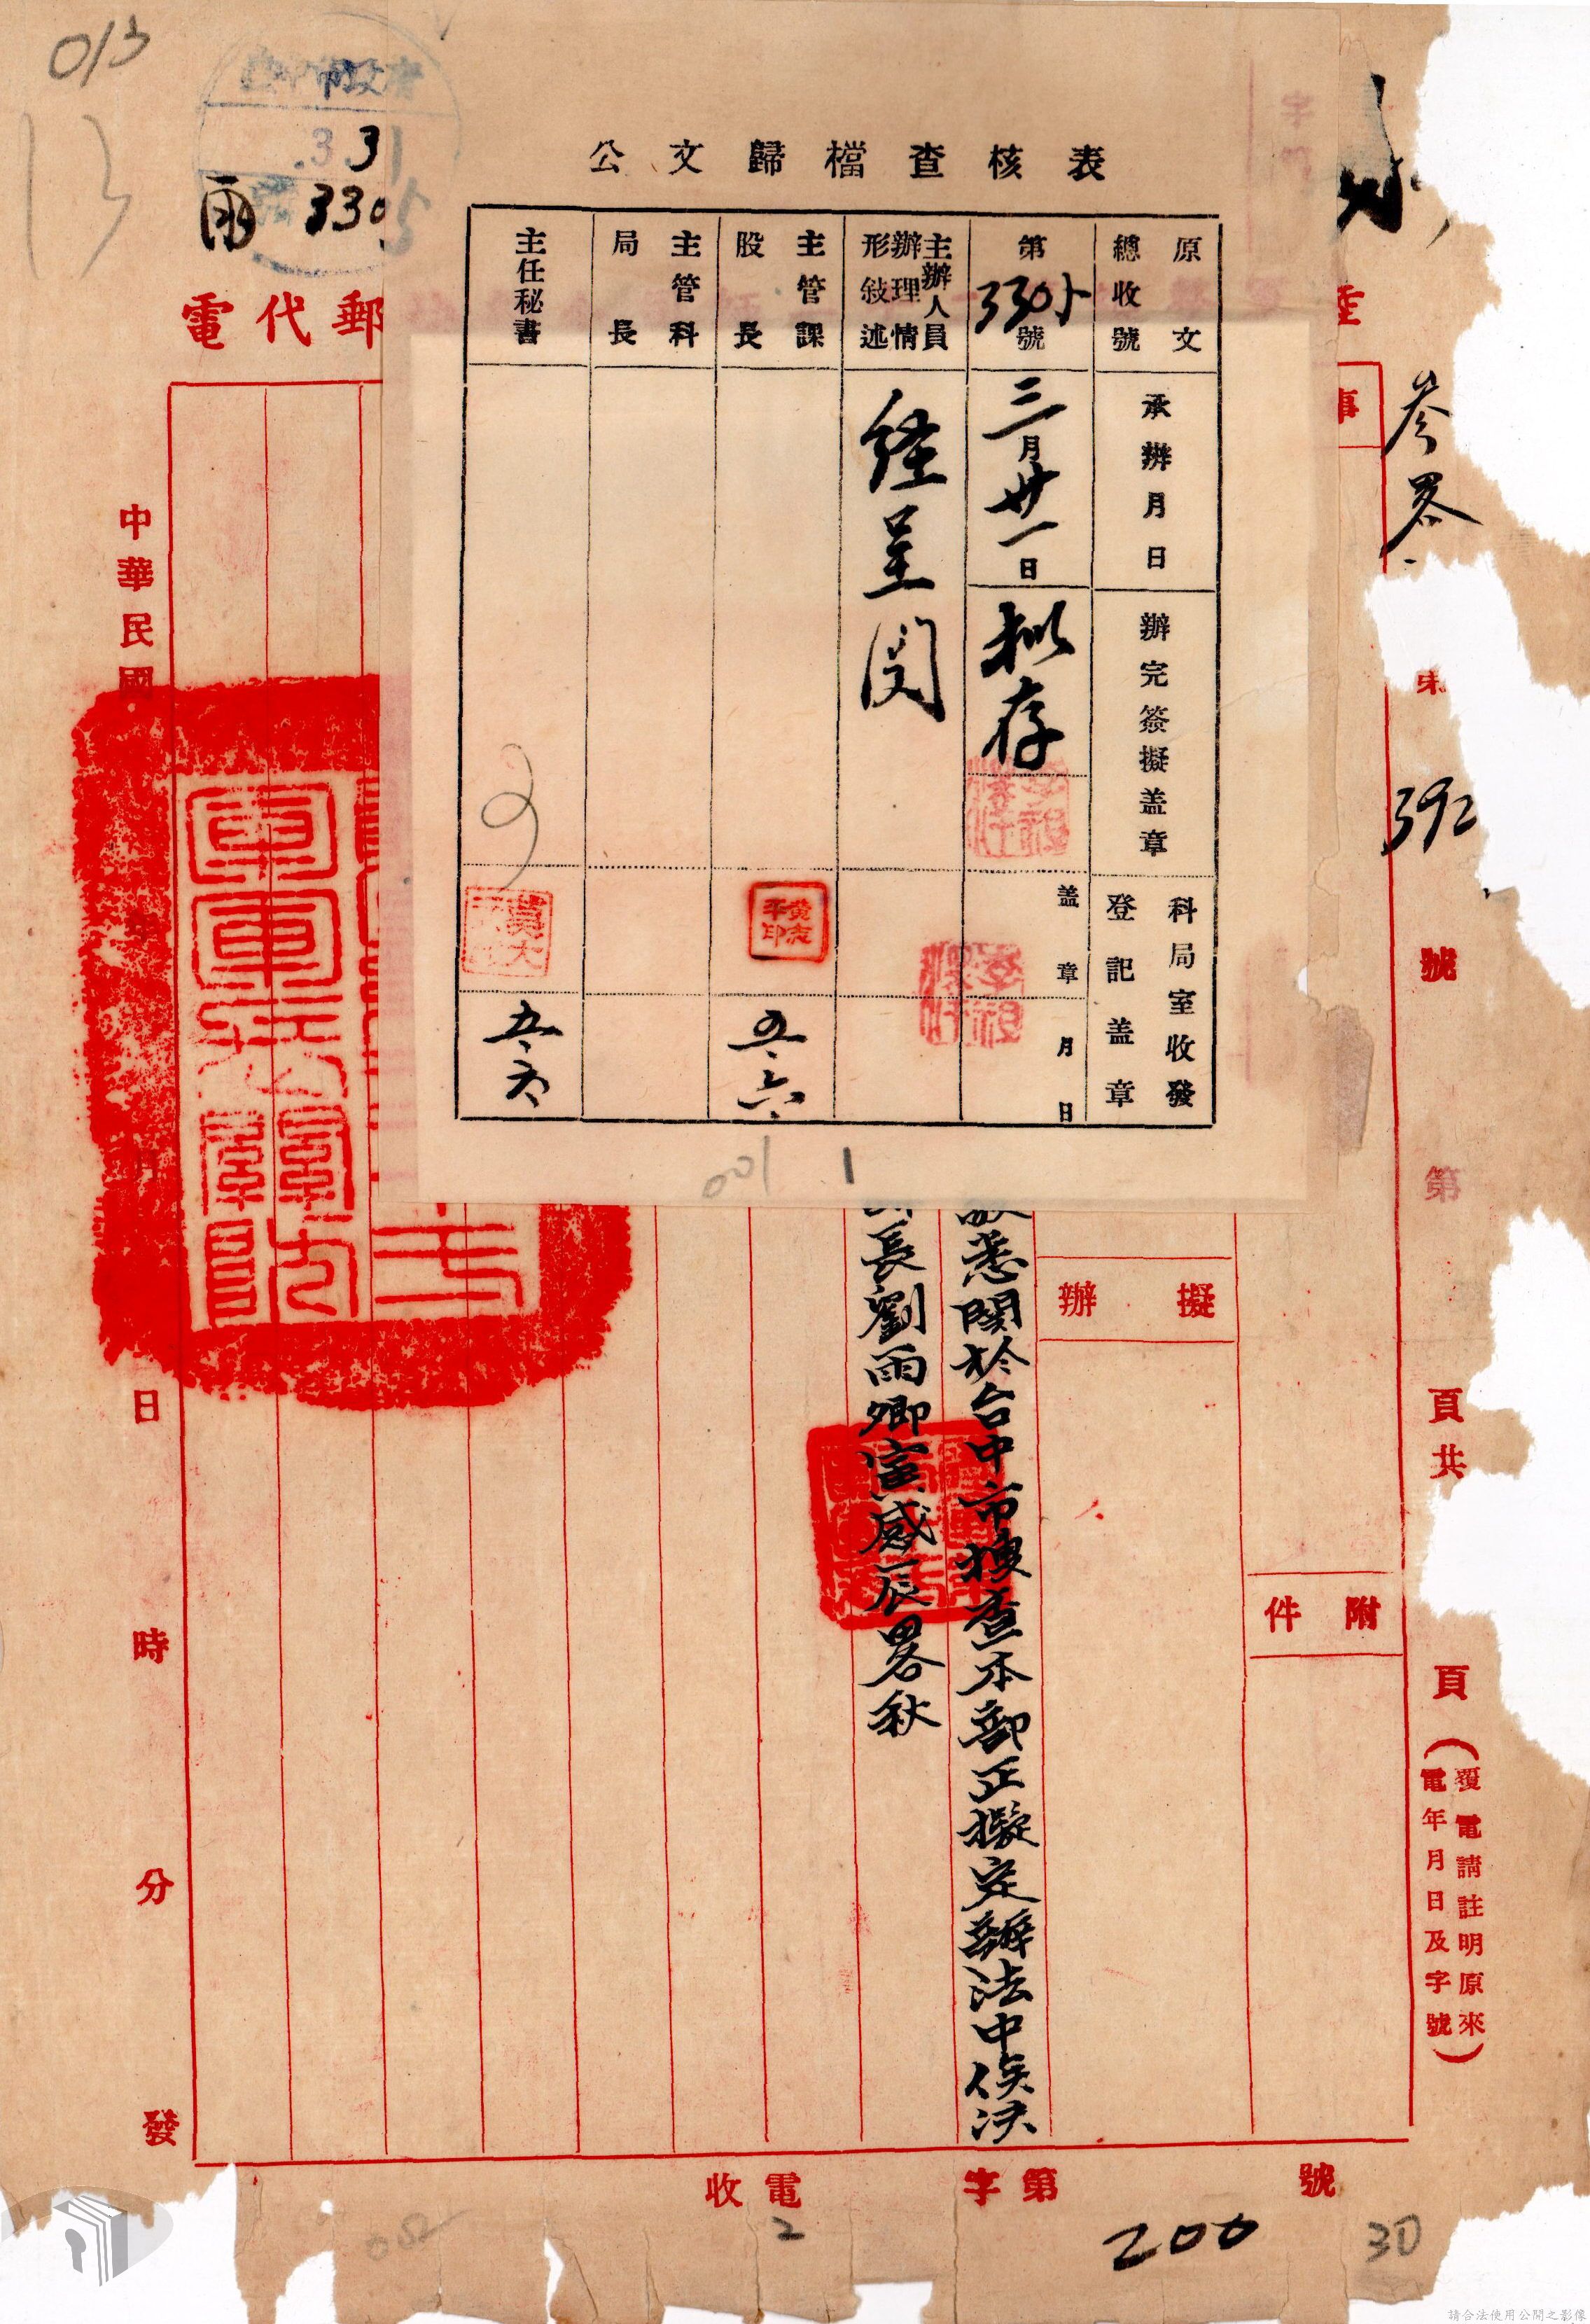 013
13
市政府
3 31
雨 3305
郵代電
公文歸檔查核表
原文
總收號
第3305號
承辦月日
三月廿一日
辦完簽擬盖章
拟存
科局室收發
登記盖章
盖章
月日
主辦人員
辦理情
形敍述
経呈閱
主管課
股長
黄志平印
五、六、
主管科
局長
主任秘書
五、六
001
1
事
参畧
392
號
第
頁共
頁
（覆電請註明原來
電年月日及字號）
附件
擬辦
敬悉関於台中市搜查本部正擬定辦法中俟決
長劉雨卿寅感辰畧秋
中華民國
年
月
日
時
分
發
號
第
字
電收
2
200
30
請合法使用公開之影像